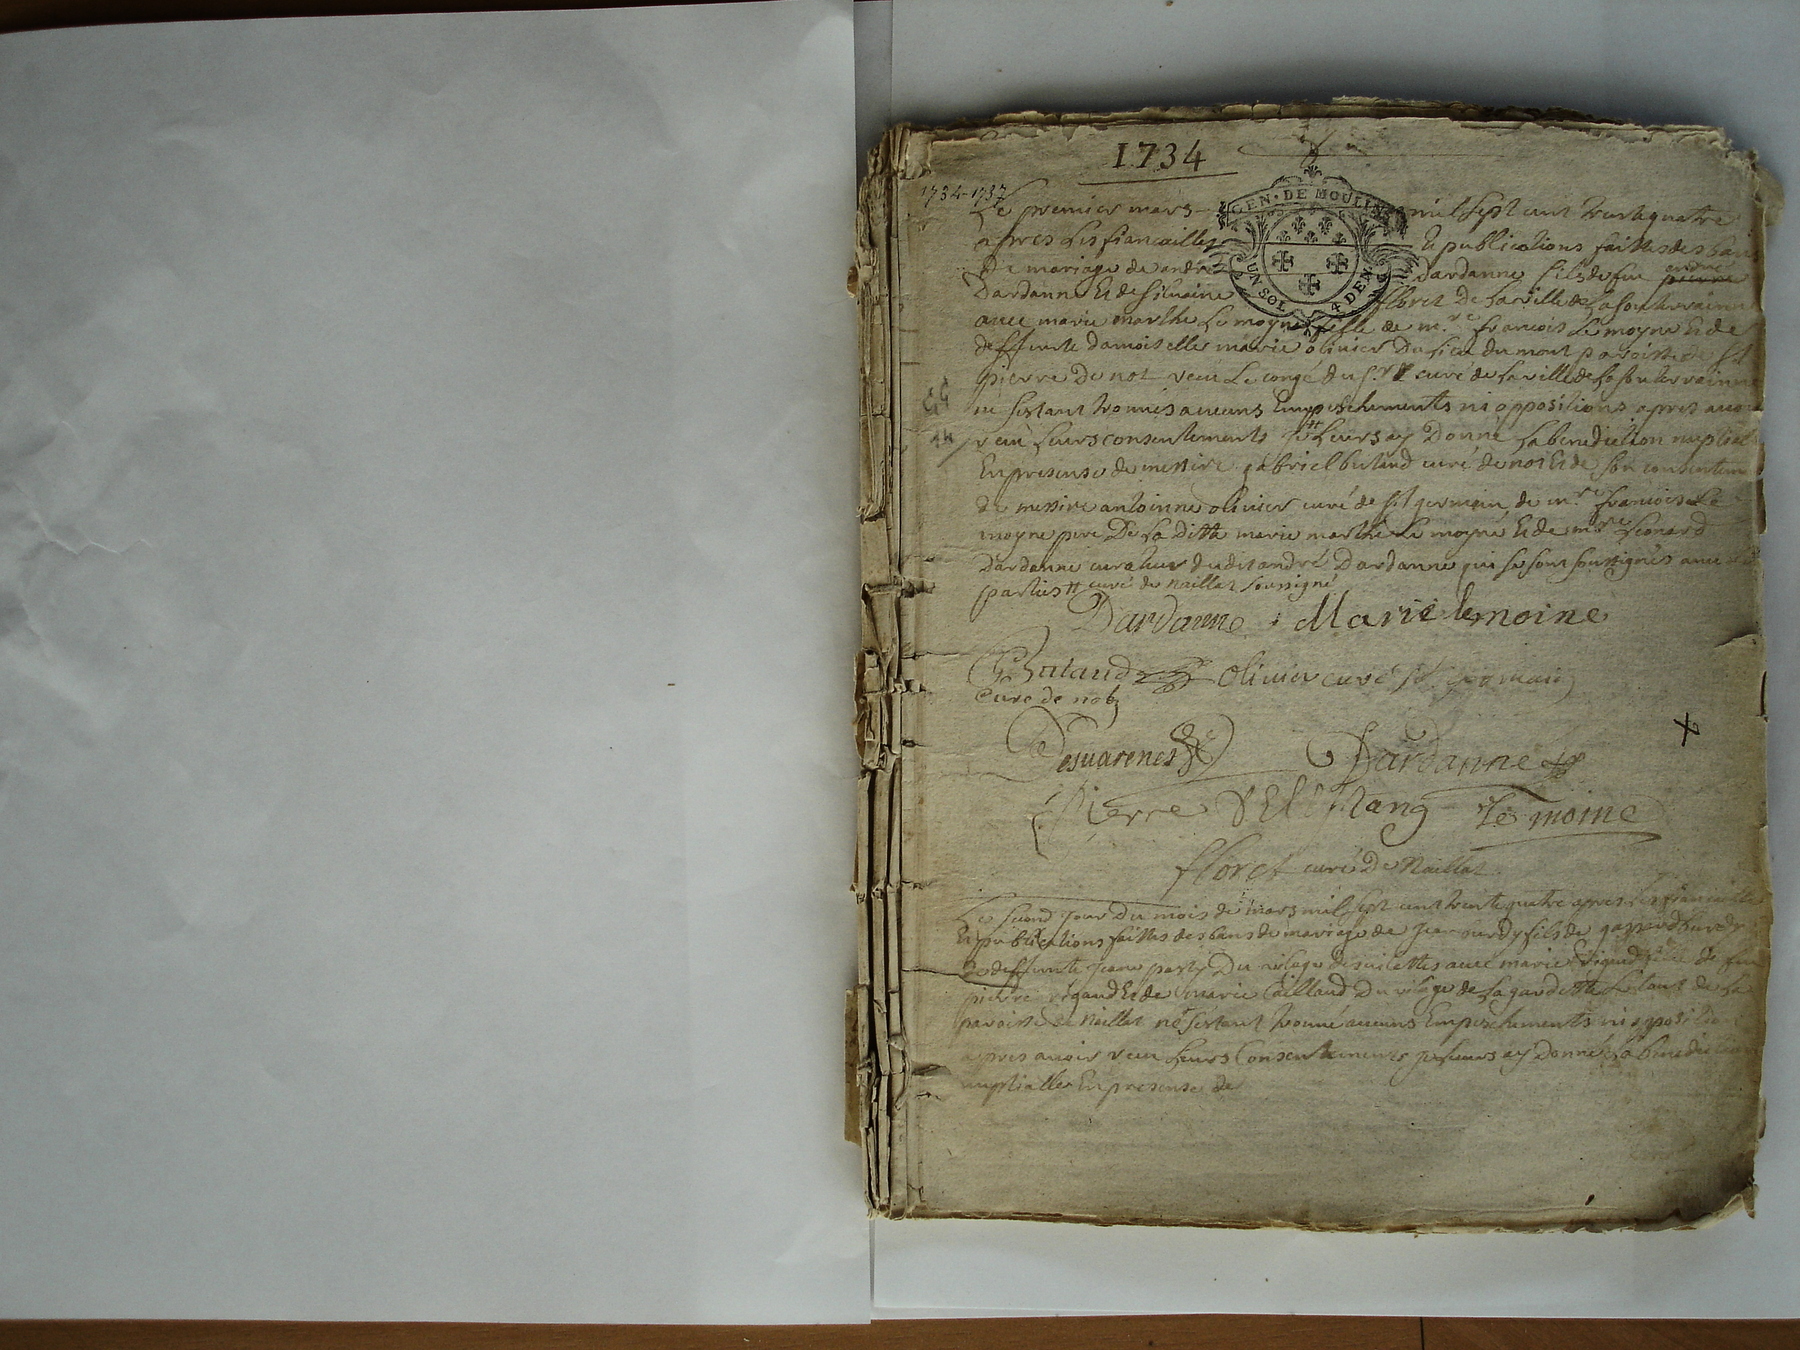 1734
1734-1737
GEN · DE MOULINS
UN SOL 4 DEN
Le premier mars mil sept cent trente quatre
apres les fiancailles et publications faittes des bans
de mariage de andré dardanne fils de feu pierre andré
Dardanne et de silvaine floret de la ville de la souterraine
avec marie marthe Le moyne fille de m.re francois Le moyne et de
deffunte damoiselle marie olivier du lieu du mont paroisse de st
pierre de not veu Le congé du s.r curé de la ville de la souterrainne
ne sestant trouvés aucuns Empeschements ni oppositions apres avoir
veu leurs consentements je leurs ay Donné la benediction nuptiale
En presense de messire gabriel butand curé de not et de son consentement
de messire antoinne olivier curé de st germain de m.re francois Le
moyne pere De la ditte marie marthe Le moyne et de m.re Leonard
Dardanne curateur dudit andré Dardanne qui se sont soussignés avec les
parties curé de naillat soussigné
Dardanne Marie lemoine
Butaud olivier curé st germain
Curé de not
Desvarenes Dardanne
Pierre Lemoine
floret curé De Naillat
Le second jour Du mois de mars mil sept cent trente quatre apres les fiancailles
Et publications faittes des bans de mariage de jean burdy fils de gaspard burdy
de deffunte jeanne party Du vilage de avec marie fille de feu
pierre et de marie Caillaud Du vilage de la gardette Le tout de la
paroisse de Naillat ne sestant trouvé aucuns Empeschements ni oppositions
apres avoir veu leurs Consentements je leurs ay Donné la benediction
nuptialle En presense de